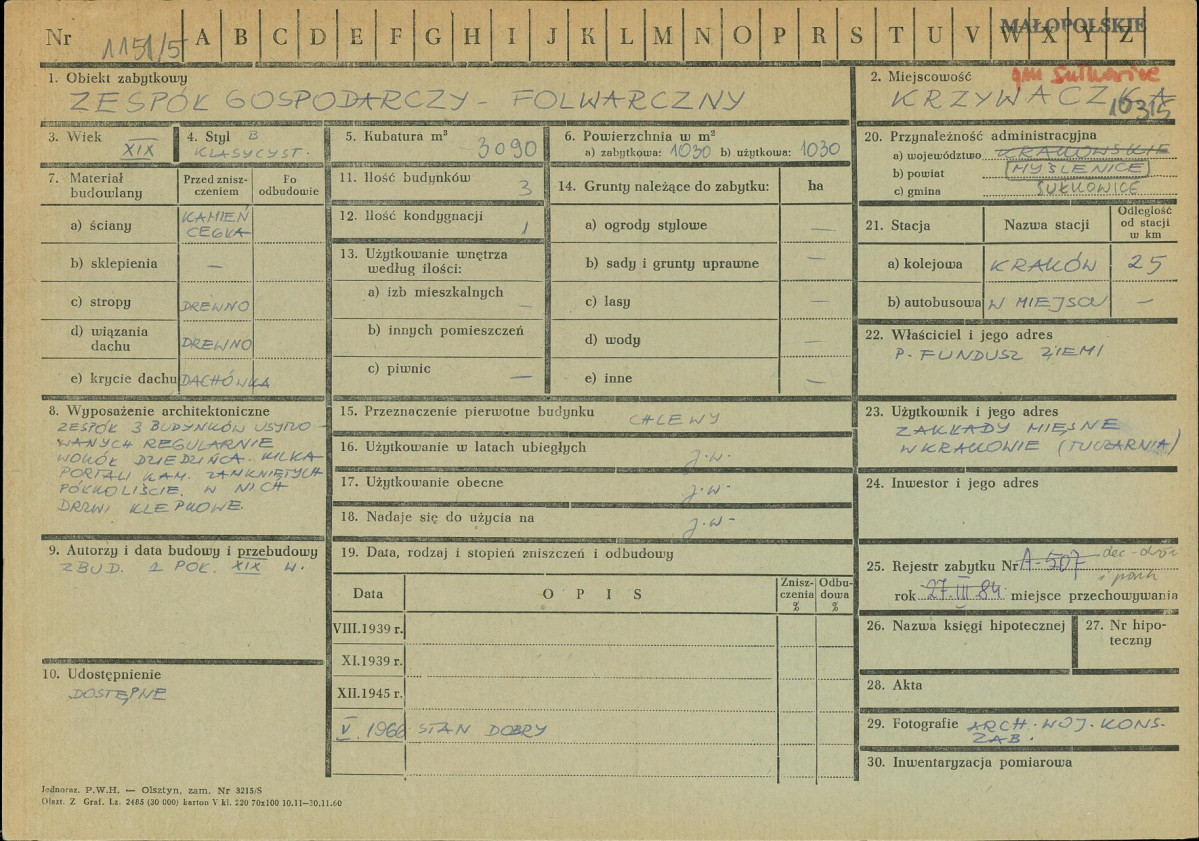 Nr 1151/5 A B C D E F G H I J K L M N O P R S T U V W X Y Z
MAŁOPOLSKIE
1. Obiekt zabytkowy
ZESPÓŁ GOSPODARCZY - FOLWARCZNY
2. Miejscowość
gm Sułkowice
KRZYWACZKA
10315
3. Wiek
XIX
4. Styl B
KLASYCYST.
5. Kubatura m³
3090
6. Powierzchnia w m²
a) zabytkowa: 1030 b) użytkowa: 1030
7. Materiał budowlany
Przed zniszczeniem
Po odbudowie
a) ściany
KAMIEŃ
CEGŁA
b) sklepienia —
c) stropy DREWNO
d) wiązania dachu DREWNO
e) krycie dachu DACHÓWKA
8. Wyposażenie architektoniczne
ZESPÓŁ 3 BUDYNKÓW USYTUO-
WANYCH REGULARNIE
WOKÓŁ DZIEDZIŃCA. KILKA
PORTALI KAM. ZAMKNIĘTYCH
PÓŁKOLIŚCIE. W NICH
DRZWI KLEPKOWE.
9. Autorzy i data budowy i przebudowy
ZBUD. 1 POŁ. XIX W.
10. Udostępnienie
DOSTĘPNE
11. Ilość budynków
3
12. Ilość kondygnacji
1
13. Użytkowanie wnętrza
według ilości:
a) izb mieszkalnych —
b) innych pomieszczeń
c) piwnic —
14. Grunty należące do zabytku: ha
a) ogrody stylowe —
b) sady i grunty uprawne —
c) lasy —
d) wody —
e) inne —
15. Przeznaczenie pierwotne budynku
CHLEWY
16. Użytkowanie w latach ubiegłych
j.w.
17. Użytkowanie obecne
j.w.
18. Nadaje się do użycia na
j.w.
19. Data, rodzaj i stopień zniszczeń i odbudowy
Data
O P I S
Zniszczenia %
Odbudowa %
VIII.1939 r.
XI.1939 r.
XII.1945 r.
V. 1966 STAN DOBRY
20. Przynależność administracyjna
a) województwo KRAKOWSKIE
b) powiat MYŚLENICE
c) gmina SUŁKOWICE
21. Stacja
Nazwa stacji
Odległość od stacji w km
a) kolejowa KRAKÓW 25
b) autobusowa W MIEJSCU —
22. Właściciel i jego adres
P. FUNDUSZ ZIEMI
23. Użytkownik i jego adres
ZAKŁADY MIĘSNE
W KRAKOWIE (TUCZARNIA)
24. Inwestor i jego adres
25. Rejestr zabytku Nr A-507 dec - dwór
i park
rok 27.III.84 miejsce przechowywania
26. Nazwa księgi hipotecznej
27. Nr hipoteczny
28. Akta
29. Fotografie ARCH. WOJ. KONS.
ZAB.
30. Inwentaryzacja pomiarowa
Jednoraz. P.W.H. — Olsztyn, zam. Nr 3215/S
Olszt. Z. Graf. Lz. 2485 (30 000) karton V kl. 220 70x100 10.11—30.11.60